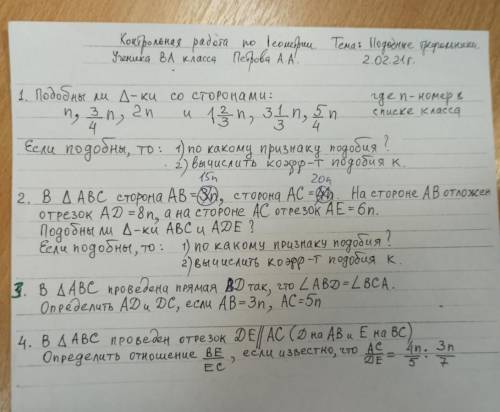 Контрольная работа по Геометрии Тема: Подобные треугольники.
Ученика 8А класса Петрова А.А. 2.02.21г.
1. Подобны ли Δ-ки со сторонами: где n-номер в
n, 3/4 n, 2n и 1 2/3 n, 3 1/3 n, 5/4 n списке класса
Если подобны, то: 1) по какому признаку подобия?
2) вычислить коэфф-т подобия k.
15n 20n
2. В ΔABC сторона AB = 3n, сторона AC = n. На стороне AB отложен
отрезок AD = 8n, а на стороне AC отрезок AE = 6n.
Подобны ли Δ-ки ABC и ADE?
Если подобны, то: 1) по какому признаку подобия?
2) вычислить коэфф-т подобия k.
3. В ΔABC проведена прямая BD так, что ∠ABD = ∠BCA.
Определить AD и DC, если AB = 3n, AC = 5n
4. В ΔABC проведен отрезок DE∥AC (D на AB и E на BC)
Определить отношение BE/EC, если известно, что AC/DE = 4n/5 : 3n/7